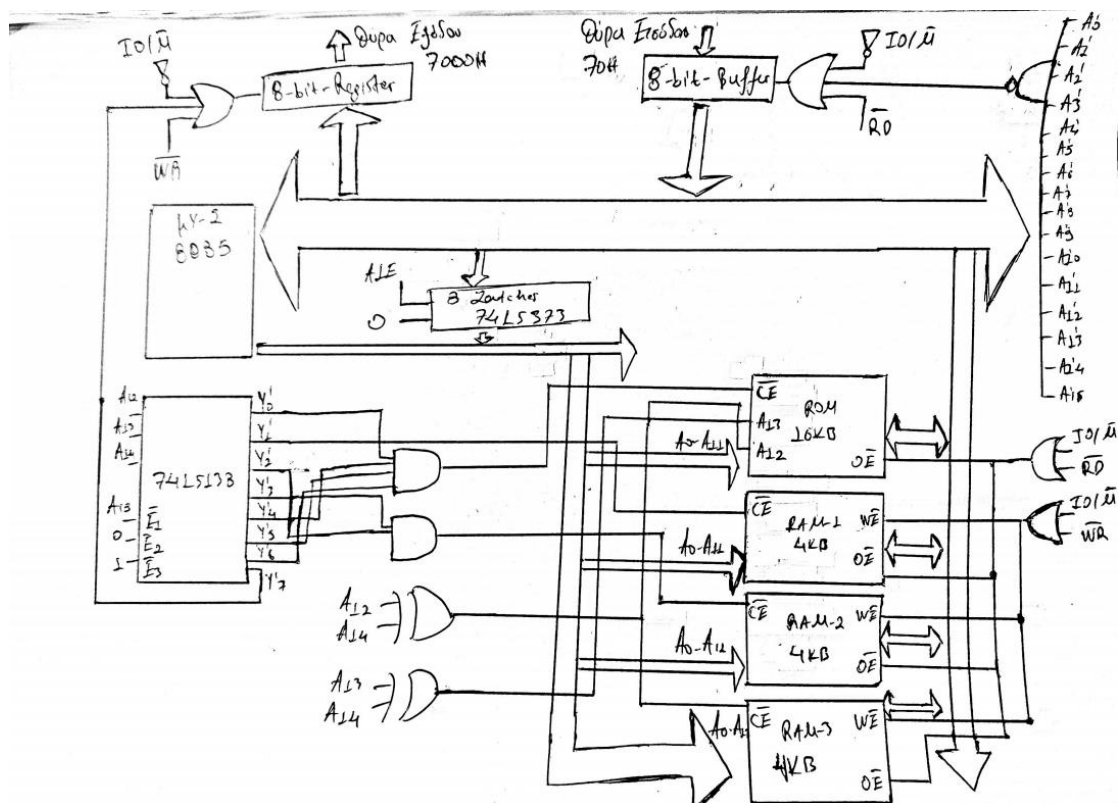 IO/M̅
Θύρα Εξόδου
7000H
8-bit-Register
W̅R̅
Θύρα Εισόδου
70H
8-bit-Buffer
IO/M̅
R̅D̅
A0'
A1'
A2'
A3'
A4'
A5'
A6'
A7'
A8'
A9'
A10'
A11'
A12'
A13'
A14'
A15'
μY-2
8085
ALE
0
8 Latches
74LS373
A12
A13
A14
A15
0
1
74LS138
E̅1
E̅2
E̅3
Y0'
Y1'
Y2'
Y3'
Y4'
Y5'
Y6'
Y7'
A12
A14
A13
A14
C̅E̅
A13
A12
ROM
16KB
O̅E̅
A0-A11
C̅E̅
RAM-1
4KB
W̅E̅
O̅E̅
A0-A11
C̅E̅
RAM-2
4KB
W̅E̅
O̅E̅
A0-A11
C̅E̅
RAM-3
4KB
W̅E̅
O̅E̅
IO/M̅
R̅D̅
IO/M̅
W̅R̅